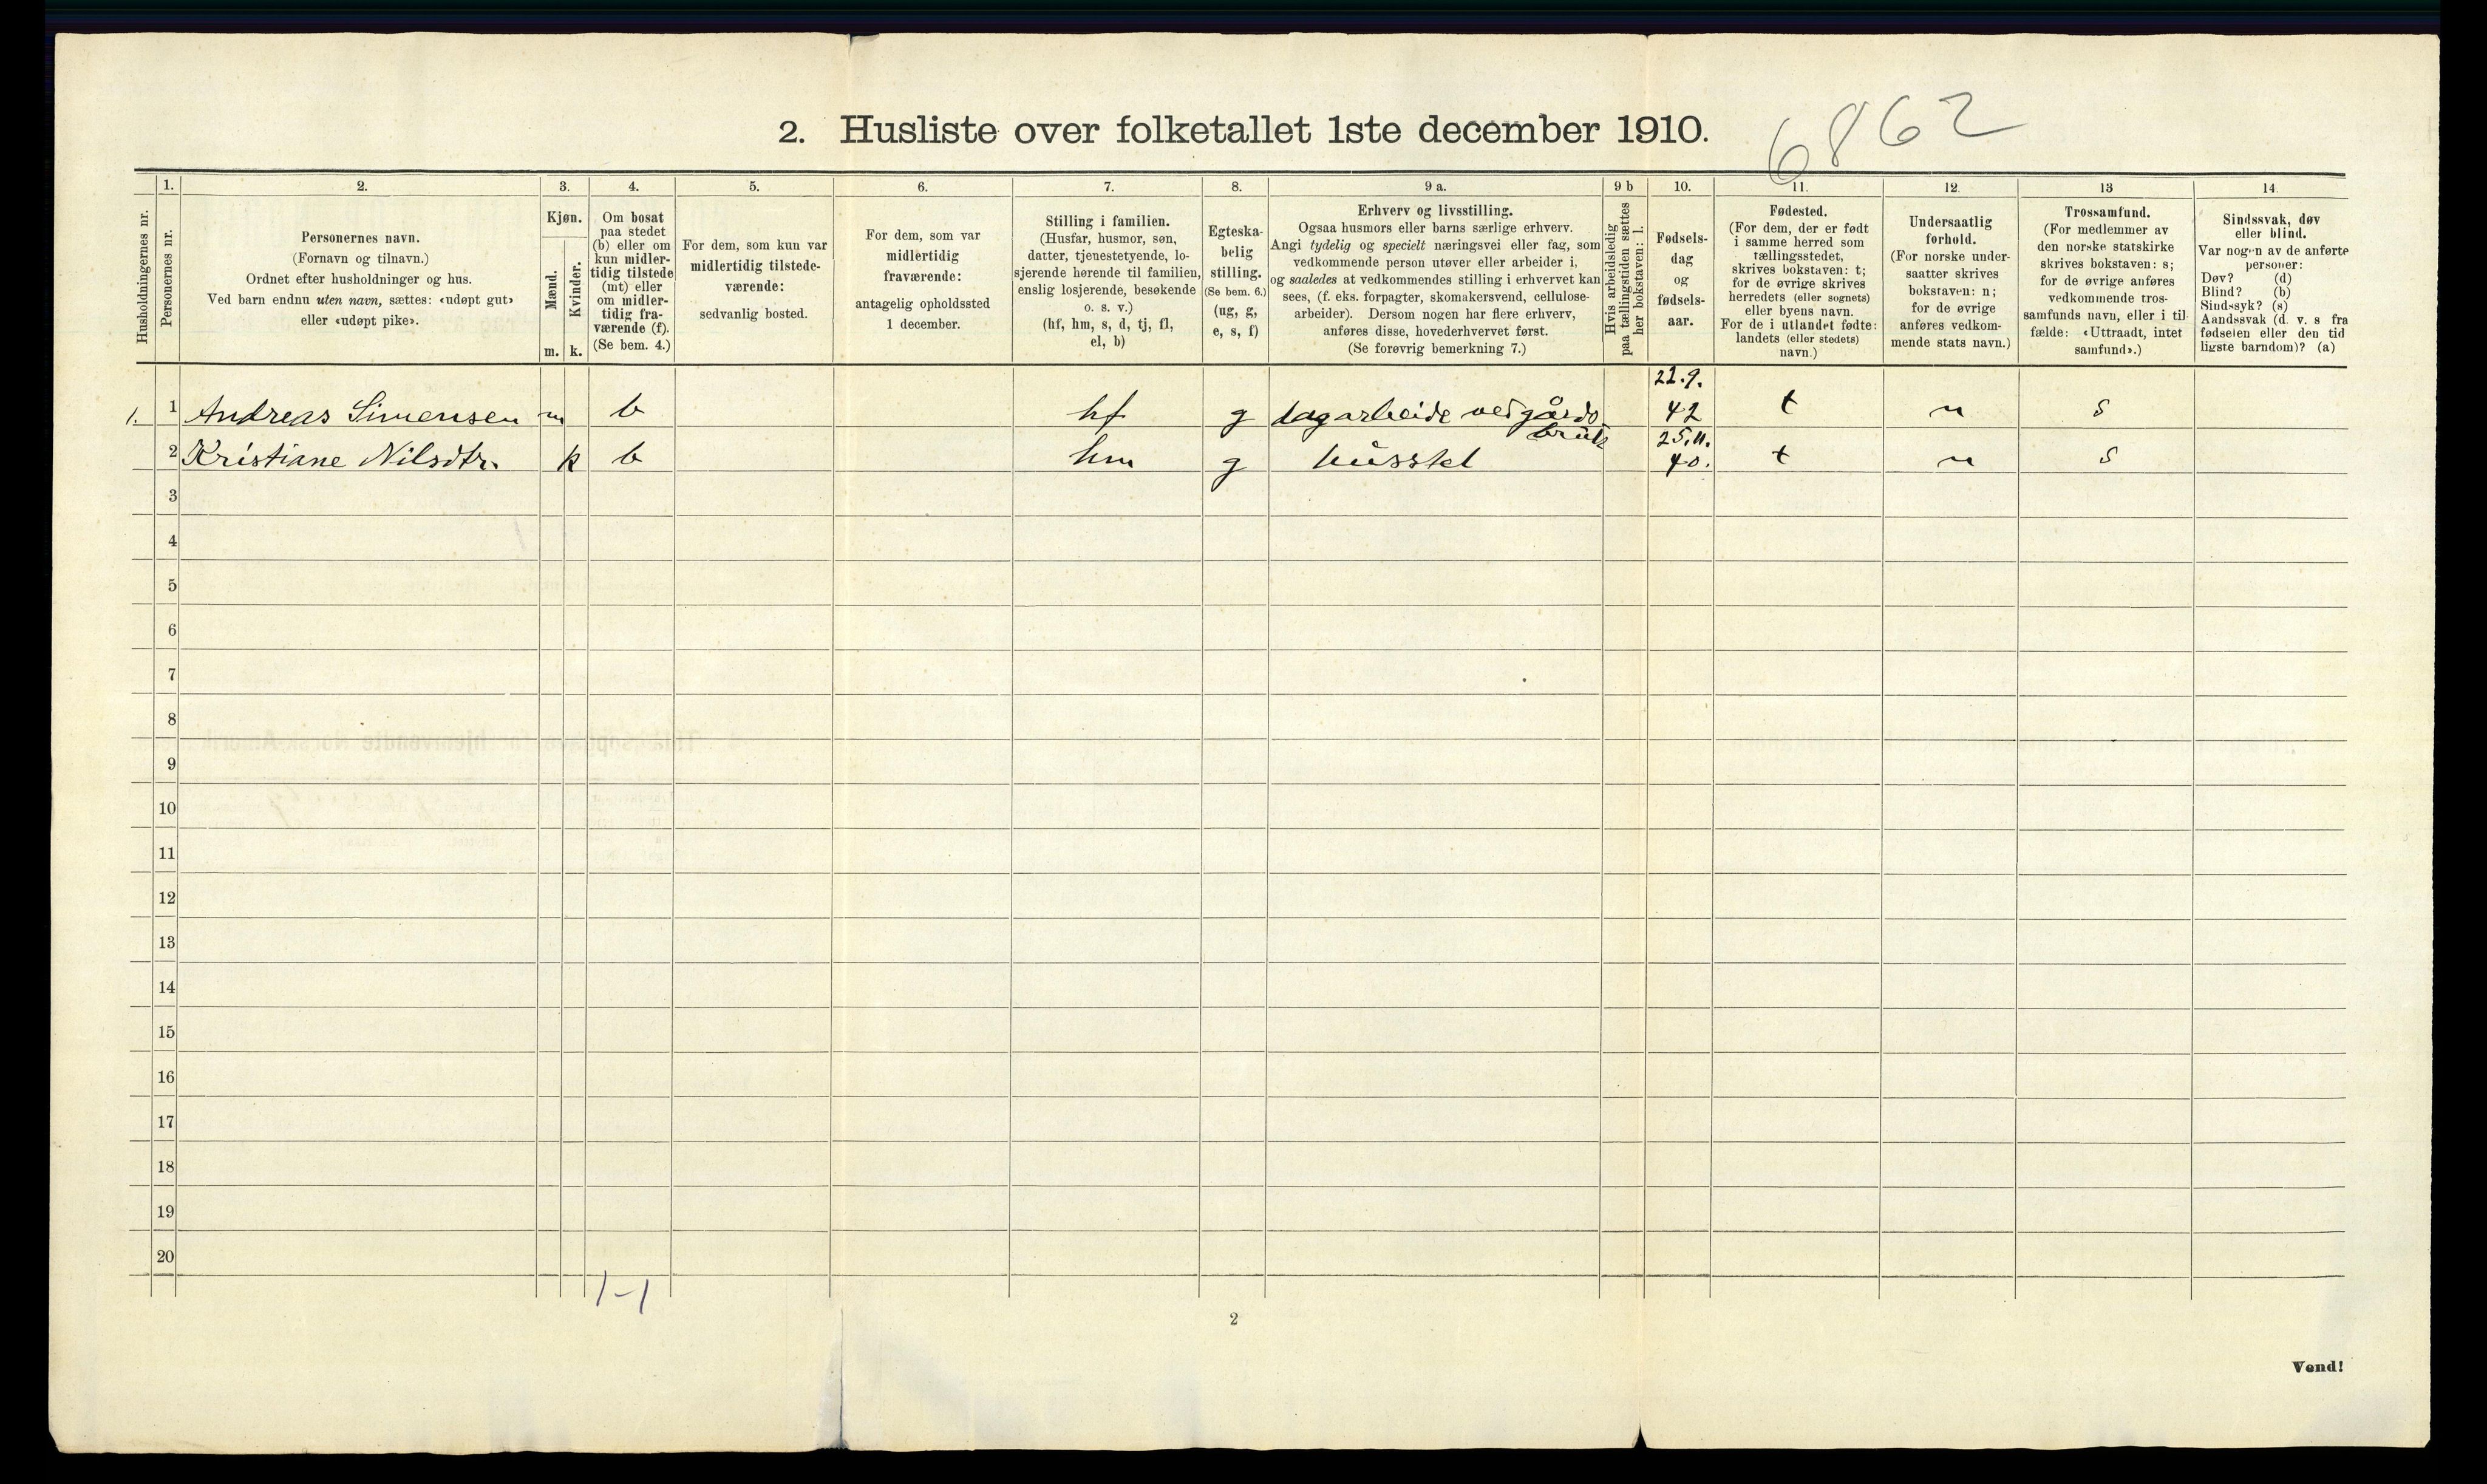 2. Husliste over folketallet 1ste december 1910.
6862
Husholdningernes nr.
1.
Personernes nr.
2.
Personernes navn.
(Fornavn og tilnavn.)
Ordnet efter husholdninger og hus.
Ved barn endnu uten navn, sættes: «udøpt gut»
eller «udøpt pike».
3.
Kjøn.
Mænd.
Kvinder.
m. k.
4.
Om bosat
paa stedet
(b) eller om
kun midler-
tidig tilstede
(mt) eller
om midler-
tidig fra-
værende (f).
(Se bem. 4.)
5.
For dem, som kun var
midlertidig tilstede-
værende:
sedvanlig bosted.
6.
For dem, som var
midlertidig
fraværende:
antagelig opholdssted
1 december.
7.
Stilling i familien.
(Husfar, husmor, søn,
datter, tjenestetyende, lo-
sjerende hørende til familien,
enslig losjerende, besøkende
o. s. v.)
(hf, hm, s, d, tj, fl,
el, b)
8.
Egteska-
belig
stilling.
(Se bem. 6.)
(ug, g,
e, s, f)
9 a.
Erhverv og livsstilling.
Ogsaa husmors eller barns særlige erhverv.
Angi tydelig og specielt næringsvei eller fag, som
vedkommende person utøver eller arbeider i,
og saaledes at vedkommendes stilling i erhvervet kan
sees, (f. eks. forpagter, skomakersvend, cellulose-
arbeider). Dersom nogen har flere erhverv,
anføres disse, hovederhvervet først.
(Se forøvrig bemerkning 7.)
9 b
Hvis arbeidsledig
paa tællingstiden sættes
her bokstaven: l.
10.
Fødsels-
dag
og
fødsels-
aar.
11.
Fødested.
(For dem, der er født
i samme herred som
tællingsstedet,
skrives bokstaven: t;
for de øvrige skrives
herredets (eller sognets)
eller byens navn.
For de i utlandet fødte:
landets (eller stedets)
navn.)
12.
Undersaatlig
forhold.
(For norske under-
saatter skrives
bokstaven: n;
for de øvrige
anføres vedkom-
mende stats navn.)
13
Trossamfund.
(For medlemmer av
den norske statskirke
skrives bokstaven: s;
for de øvrige anføres
vedkommende tros-
samfunds navn, eller i til-
fælde: «Uttraadt, intet
samfund».)
14.
Sindssvak, døv
eller blind.
Var nogen av de anførte
personer:
Døv? (d)
Blind? (b)
Sindssyk? (s)
Aandssvak (d. v. s fra
fødselen eller den tid
ligste barndom)? (a)
1. 1 Andreas Simensen m b hf g dagarbeide ved gårds bruk 22.9. 42 t n s
2 Kristiane Nilsdtr. k b hm g husstel 25.11. 40. t n s
3
4
5
6
7
8
9
10
11
12
13
14
15
16
17
18
19
20
1-1
2
Vend!